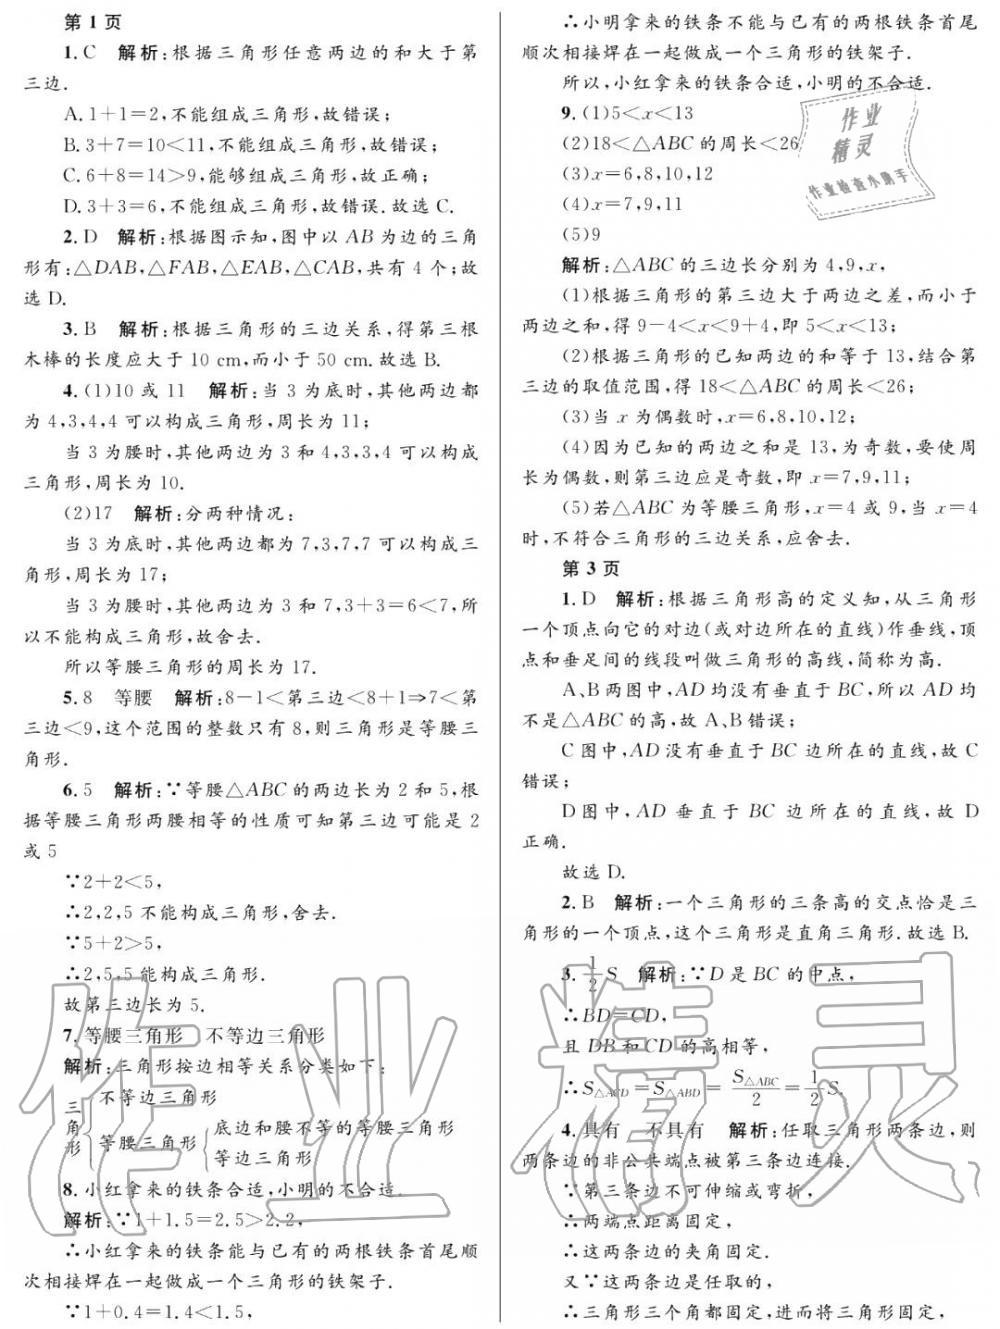 第 1 页
1.C　解析:根据三角形任意两边的和大于第
三边.
A.1+1=2,不能组成三角形,故错误;
B.3+7=10<11,不能组成三角形,故错误;
C.6+8=14>9,能够组成三角形,故正确;
D.3+3=6,不能组成三角形,故错误.故选 C.
2.D　解析:根据图示知,图中以 AB 为边的三角
形有:△DAB,△FAB,△EAB,△CAB,共有 4 个;故
选 D.
3.B　解析:根据三角形的三边关系,得第三根
木棒的长度应大于 10 cm,而小于 50 cm.故选 B.
4.(1)10 或 11　解析:当 3 为底时,其他两边都
为 4,3,4,4 可以构成三角形,周长为 11;
当 3 为腰时,其他两边为 3 和 4,3,3,4 可以构成
三角形,周长为 10.
(2)17　解析:分两种情况:
当 3 为底时,其他两边都为 7,3,7,7 可以构成三
角形,周长为 17;
当 3 为腰时,其他两边为 3 和 7,3+3=6<7,所
以不能构成三角形,故舍去.
所以等腰三角形的周长为 17.
5.8　等腰　解析:8-1<第三边<8+1⇒7<第
三边<9,这个范围的整数只有 8,则三角形是等腰三
角形.
6.5　解析:∵等腰△ABC 的两边长为 2 和 5,根
据等腰三角形两腰相等的性质可知第三边可能是 2
或 5
∵2+2<5,
∴2,2,5 不能构成三角形,舍去.
∵5+2>5,
∴2,5,5 能构成三角形.
故第三边长为 5.
7.等腰三角形　不等边三角形
解析:三角形按边相等关系分类如下:
三角形{不等边三角形
等腰三角形{底边和腰不等的等腰三角形
等边三角形
8.小红拿来的铁条合适,小明的不合适.
解析:∵1+1.5=2.5>2.2,
∴小红拿来的铁条能与已有的两根铁条首尾顺
次相接焊在一起做成一个三角形的铁架子.
∵1+0.4=1.4<1.5,
∴小明拿来的铁条不能与已有的两根铁条首尾
顺次相接焊在一起做成一个三角形的铁架子.
所以,小红拿来的铁条合适,小明的不合适.
9.(1)5<x<13
(2)18<△ABC 的周长<26
(3)x=6,8,10,12
(4)x=7,9,11
(5)9
作业
精灵
作业检查小助手
解析:△ABC 的三边长分别为 4,9,x,
(1)根据三角形的第三边大于两边之差,而小于
两边之和,得 9-4<x<9+4,即 5<x<13;
(2)根据三角形的已知两边的和等于 13,结合第
三边的取值范围,得 18<△ABC 的周长<26;
(3)当 x 为偶数时,x=6,8,10,12;
(4)因为已知的两边之和是 13,为奇数,要使周
长为偶数,则第三边应是奇数,即 x=7,9,11;
(5)若△ABC 为等腰三角形,x=4 或 9,当 x=4
时,不符合三角形的三边关系,应舍去.
第 3 页
1.D　解析:根据三角形高的定义知,从三角形
一个顶点向它的对边(或对边所在的直线)作垂线,顶
点和垂足间的线段叫做三角形的高线,简称为高.
A、B 两图中,AD 均没有垂直于 BC,所以 AD 均
不是△ABC 的高,故 A、B 错误;
C 图中,AD 没有垂直于 BC 边所在的直线,故 C
错误;
D 图中,AD 垂直于 BC 边所在的直线,故 D
正确.
故选 D.
2.B　解析:一个三角形的三条高的交点恰是三
角形的一个顶点,这个三角形是直角三角形.故选 B.
3.1/2 S　解析:∵D 是 BC 的中点,
∴BD=CD,
且 DB 和 CD 的高相等,
∴S△ACD=S△ABD=S△ABC/2=1/2 S.
4.具有　不具有　解析:任取三角形两条边,则
两条边的非公共端点被第三条边连接.
∵第三条边不可伸缩或弯折,
∴两端点距离固定,
∴这两条边的夹角固定.
又∵这两条边是任取的,
∴三角形三个角都固定,进而将三角形固定,
作业精灵